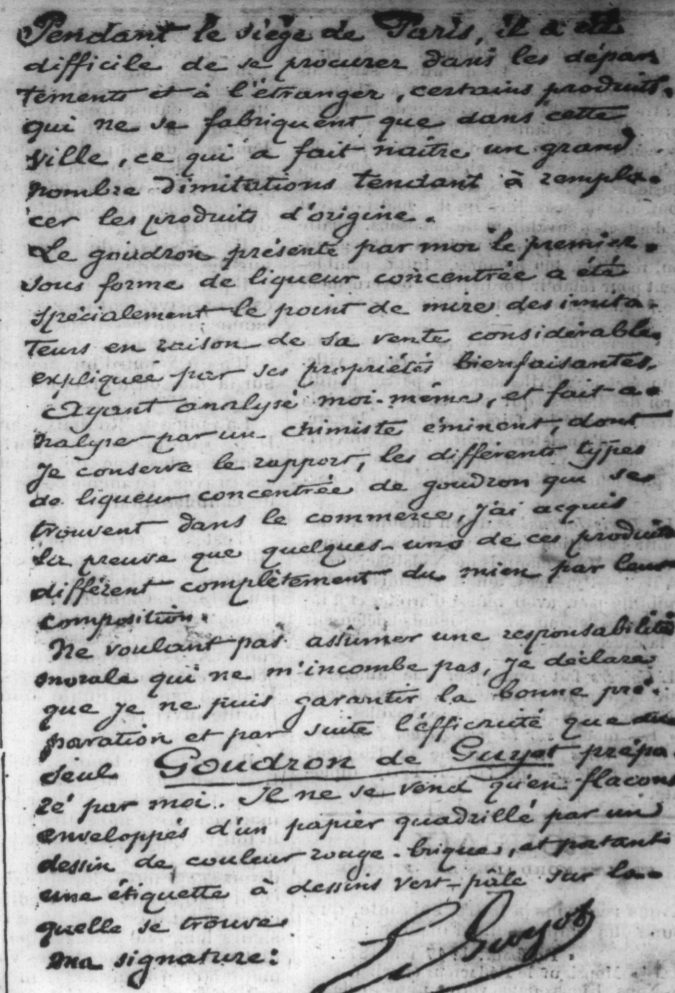 Pendant le siège de Paris, il a été
difficile de se procurer dans les dépar
tements et à l'étranger, certains produits
qui ne se fabriquent que dans cette
ville, ce qui a fait naître un grand
nombre d'imitations tendant à rempla-
cer les produits d'origine.
Le goudron présenté par moi le premier
sous forme de liqueur concentrée a été
spécialement le point de mire des imita-
teurs en raison de sa vente considérable
expliquée par ses propriétés bienfaisantes.
Ayant analysé moi-même, et fait a-
nalyser par un chimiste éminent, dont
je conserve le rapport, les différents types
de liqueur concentrée de goudron qui se
trouvent dans le commerce, j'ai acquis
la preuve que quelques-uns de ces produits
différent complètement du mien par leur
composition.
Ne voulant pas assumer une responsabilité
morale qui ne m'incombe pas, je déclare
que je ne puis garantir la bonne pré-
paration et par suite l'efficacité que du
seul Goudron de Guyot prépa
ré par moi. Il ne se vend qu'en flacons
enveloppés d'un papier quadrillé par un
dessin de couleur rouge-brique, et portant
une étiquette à dessins vert-pâle sur la-
quelle se trouve
ma signature:
E Guyot